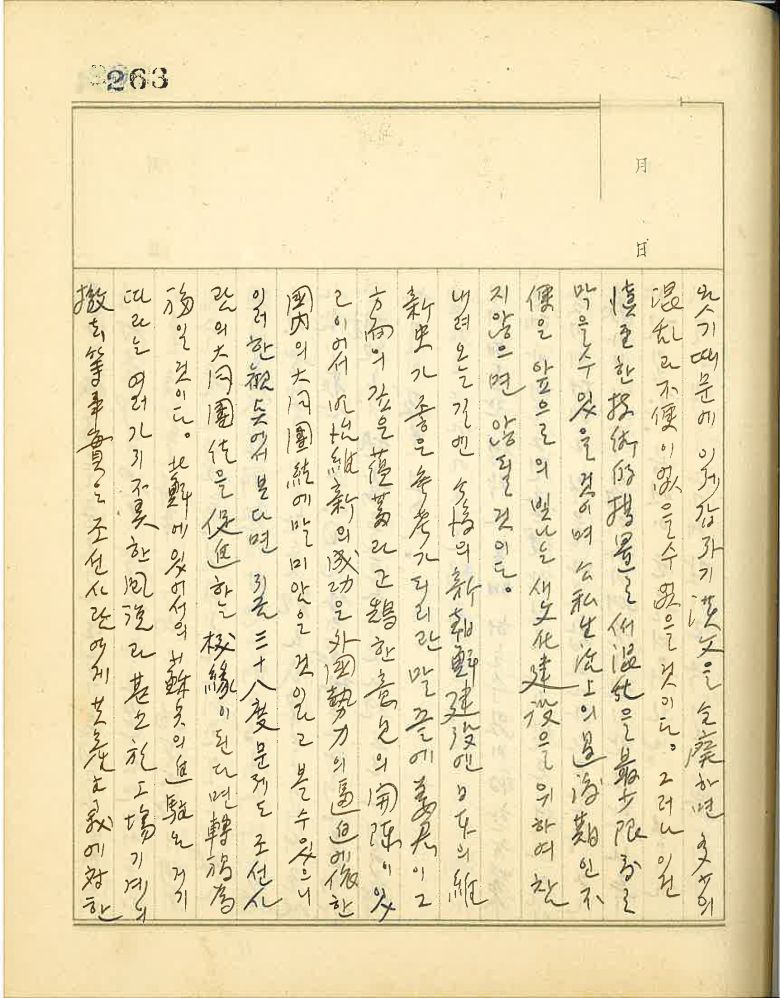 263
月 日
왔기 때문에 이제 갑자기 漢文을 全廢하면 多少의
混乱과 不便이 없을 수 없을 것이다. 그러나 이런
愼重한 技術的 措置로서 混乱을 最少限度로
막을 수 있을 것이며 公私生活上의 過渡期인 不
便을 앞으로의 빛나는 새 文化建設을 위하여 참
지 않으면 않될 것이다.
내려오는 길엔 今後의 新朝鮮建設엔 日本의 維
新史가 좋은 參考가 되리란 말 끝에 姜君이 그
方面의 깊은 蘊蓄과 正鵠한 意見의 開陳이 있
고 이어서 明治維新의 成功을 外國勢力의 逼迫에 依한
國內의 大同團結에 말미암은 것이라고 볼 수 있으니
이러한 觀点에서 본다면 三十八度 문제도 조선사
람의 大同團結을 促進하는 機緣이 된다면 轉禍爲
福일 것이다. 北鮮에 있어서의 蘇兵의 進駐는 거기
따르는 여러가지 不美한 風說과 甚至於 工場기계의
撤去等 事實은 조선사람에게 共產主義에 對한